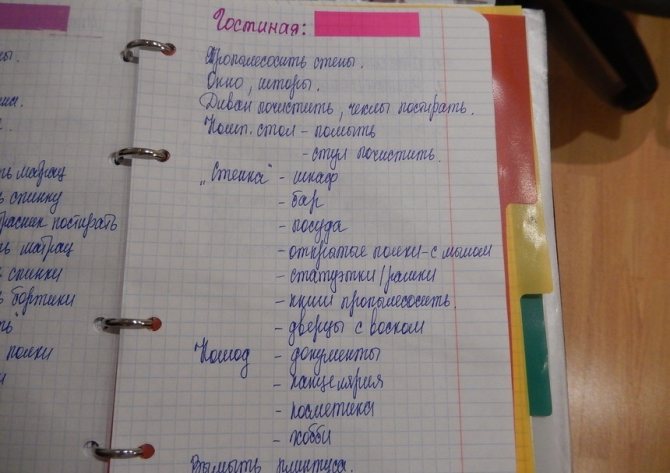 Гостиная:
Пропылесосить стены.
Окно, шторы.
Диван почистить, чехлы постирать.
Комп. стол - помыть
- стул почистить.
„Стенка" - шкаф
- бар
- посуда
- открытые полки - с мылом
- статуэтки/рамки
- книги пропылесосить.
- дверцы с воском
Комод - документы
- канцелярия
- косметика
- хобби
Вымыть плинтуса.
ть матрац
ь спинку
расник постирать
ть матрац
ь спинки
ь бортики
ть
полки